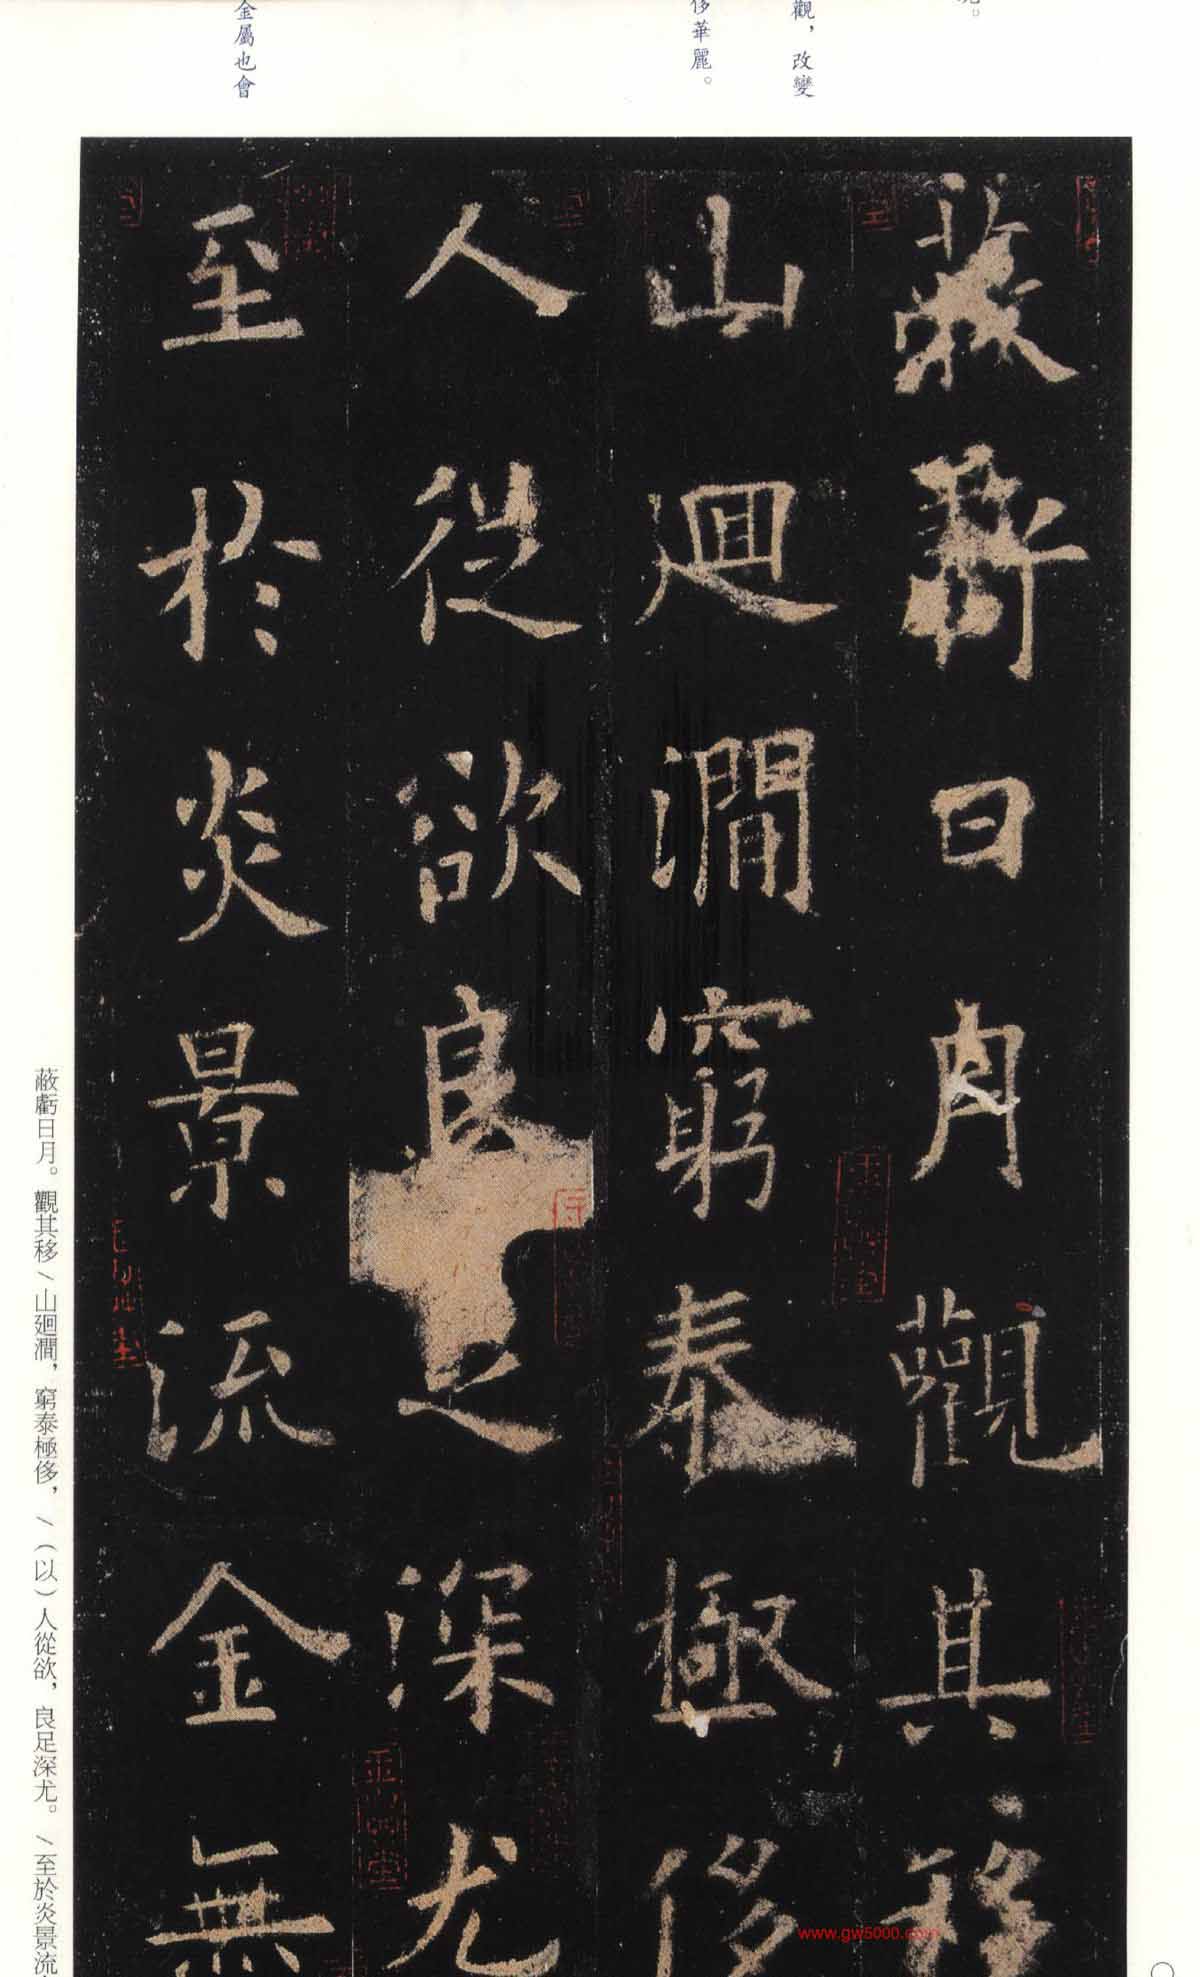 觀，改變
侈華麗。
金屬也會
蔽虧日月觀其移
山迴澗窮泰極侈
人從欲良足深尤
至於炎景流金無
蔽虧日月。觀其移／山迴澗，窮泰極侈，／（以）人從欲，良足深尤。／至於炎景流
www.gw5000.com